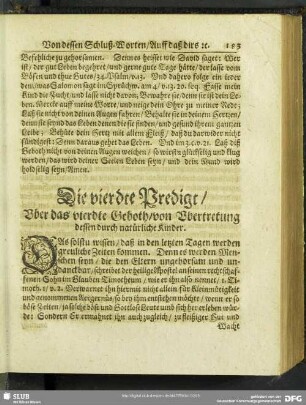 Von dessen Schluß-Worten/ Auff daß dirs ꝛc. 193
Befehlich zu gehorsamen. Denn es heisset wie David saget: Wer
ist/ der gut Leben begehret/ und gerne gute Tage hätte/ der lasse vom
Bösen und thue Gutes/ 34. Psalm/ v. 13. Und dahero folge ein ieder
dem/ was Salomon sagt im Sprüchw. am 4/ v. 13. 20. seq. Fasse mein
Kind die Zucht/ und lasse nicht davon/ Bewahre sie/ denn sie ist dein Le-
ben. Mercke auff meine Worte/ und neige dein Ohre zu meiner Rede;
Laß sie nicht von deinen Augen fahren/ Behalte sie in deinem Hertzen/
denn sie sind das Leben denen die sie finden/ und gesund ihrem gantzen
Leibe; Behüte dein Hertz mit allem Fleiß/ daß du darwider nicht
sündigest: Denn daraus gehet das Leben. Und im 3. C. v. 21. Laß diß
Geboth nicht von deinen Augen weichen/ so wirstu glückselig und klug
werden/ das wird deiner Seelen Leben seyn/ und dein Mund wird
holdselig seyn/ Amen.
Die vierdte Predigt/
Uber das vierdte Geboth/ von Ubertretung
dessen durch natürliche Kinder.
DAs solstu wissen/ daß in den letzten Tagen werden
greuliche Zeiten kommen. Denn es werden Men-
schen seyn/ die den Eltern ungehorsam und un-
danckbar/ schreibet der heilige Apostel an seinen rechtschaf-
fenen Sohn im Glauben Timotheum/ wie er ihn also nennet/ 1. Ti-
moth. 1/ v. 2. Verwarnet ihn hiermit nicht allein für Kleinmütigkeit
und genommenen Aergernüs/ so bey ihm entstehen möchte/ wenn er so
böse Zeiten/ ja solche böse und Gottlose Leute und sich her erleben wür-
de: Sondern Er ermahnet ihn auch zugleich/ zu fleißiger Hut und
Wacht
SLUB
Wir führen Wissen.
http://digital.slub-dresden.de/
gefördert von der
Deutschen Forschungsgemeinschaft
DFG